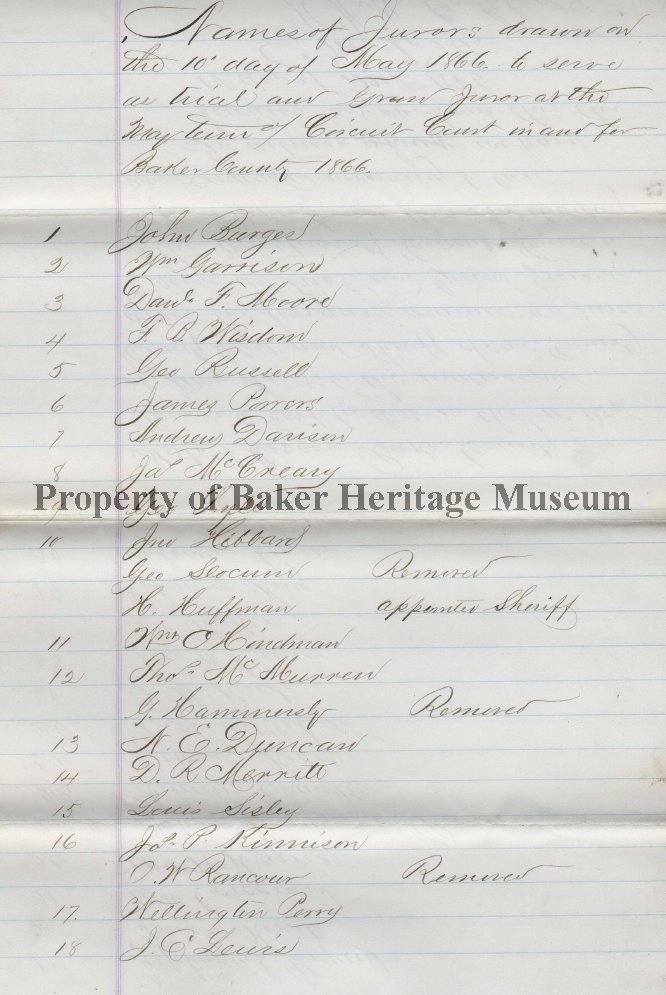 Names of Jurors drawn on
the 10" day of May 1866. to serve
as trial and Gran Juror at the
May term of Circuit Court in and for
Baker County 1866.
1 John Burges
2 Wm Garrison
3 Danl. F. Moore
4 F. B. Wisdom
5 Geo Russell
6 James Powers
7 Andrew Davison
8 Jas McCreary
Property of Baker Heritage Museum
9 Geo
10 Jno Hibbard
Geo Slocum Removed
H. Huffman appointed Sheriff
11 Wm C Hindman
12 Thos. McMurren
G. Hammersly Removed
13 N. E. Duncan
14 D. R Merritt
15 Louis Sisley
16 Jas. P. Kinnison
O. W Rancour Removed
17. Wellington Perry
18 J. C Lewis